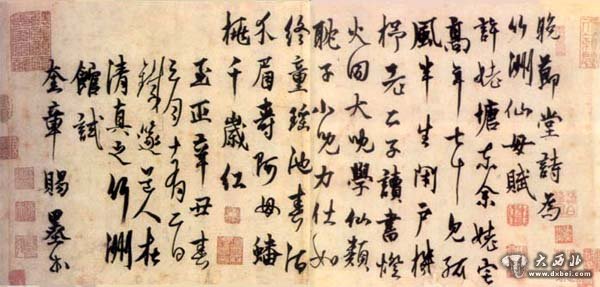 晚節堂詩為
竹洲仙母賦
許姥塘東余姥宅
高年七十見孤
風半生閉戶機
杼老二子讀書燈
火同大兒學仙類
耽子小兒力仕如
終童瑤池春酒
介眉壽阿母蟠
桃千歲紅
至正辛丑春
三月十有二日
鐵篴道人在
清真之竹洲
館試
奎章賜墨書
大西北
www.dxbei.com